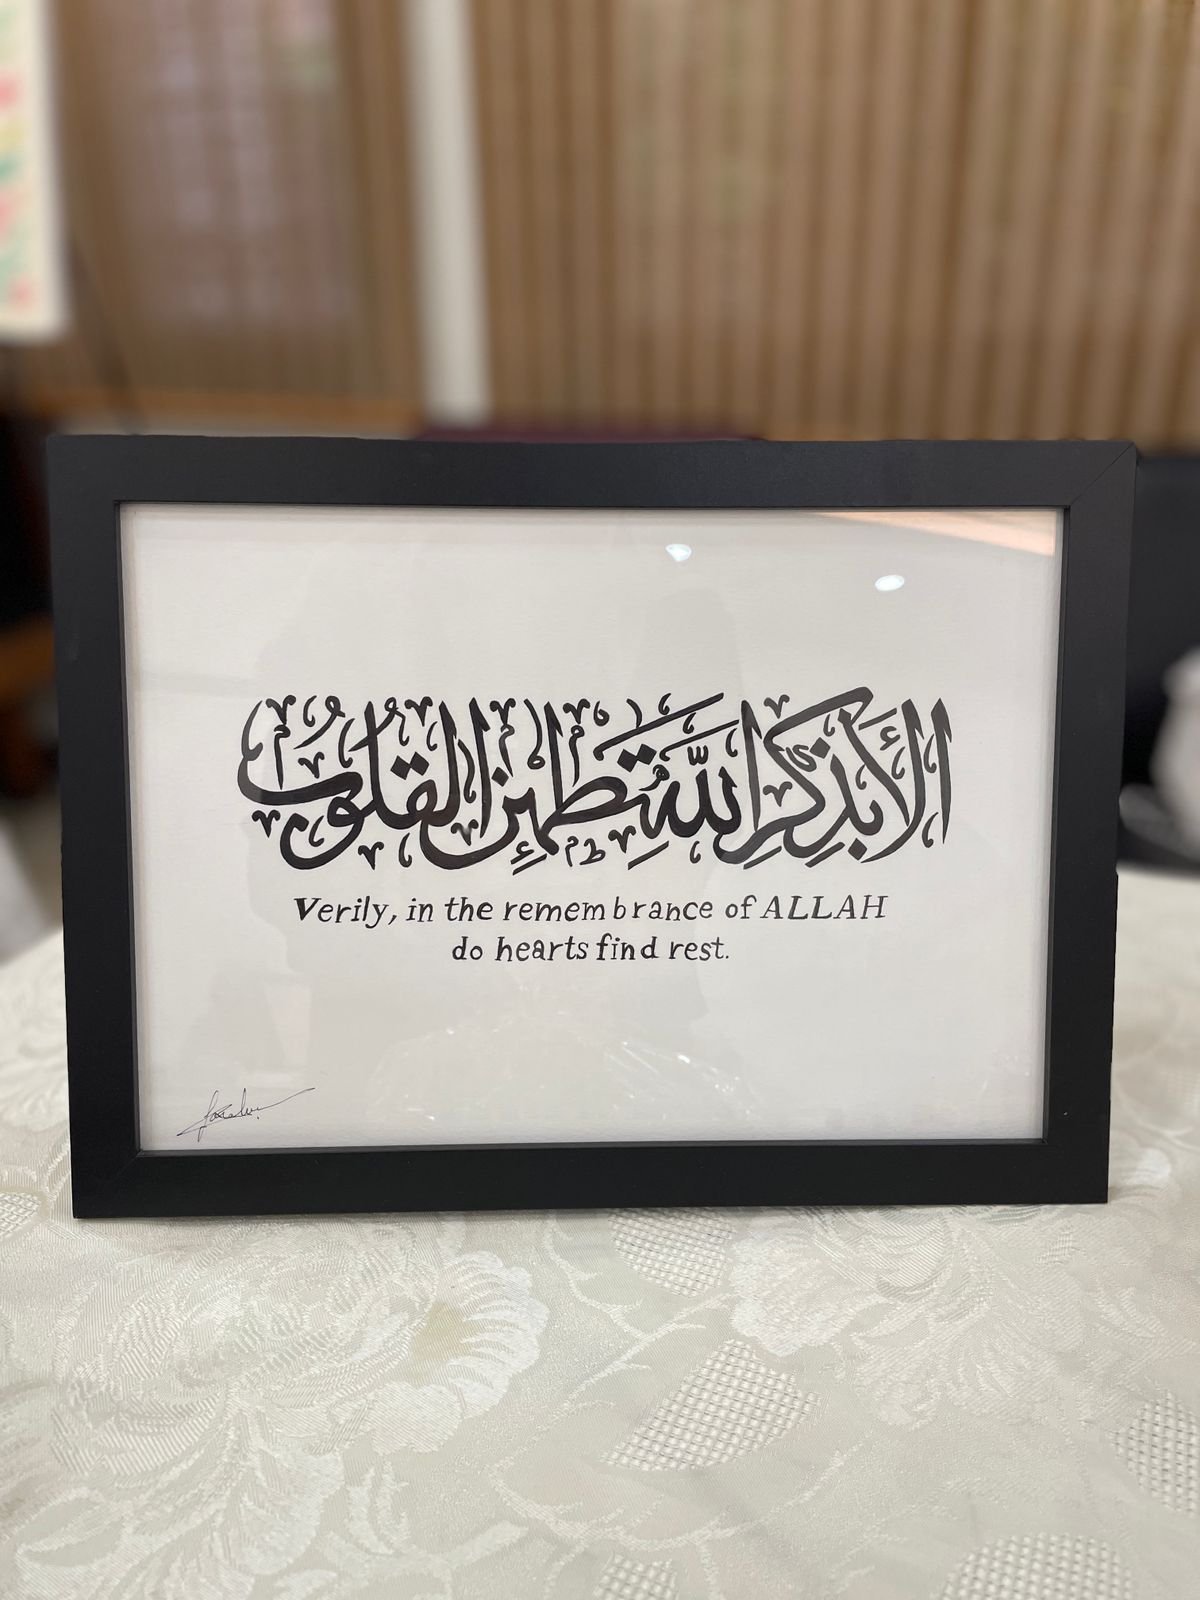 ألا بذكر الله تطمئن القلوب
Verily, in the remembrance of ALLAH
do hearts find rest.